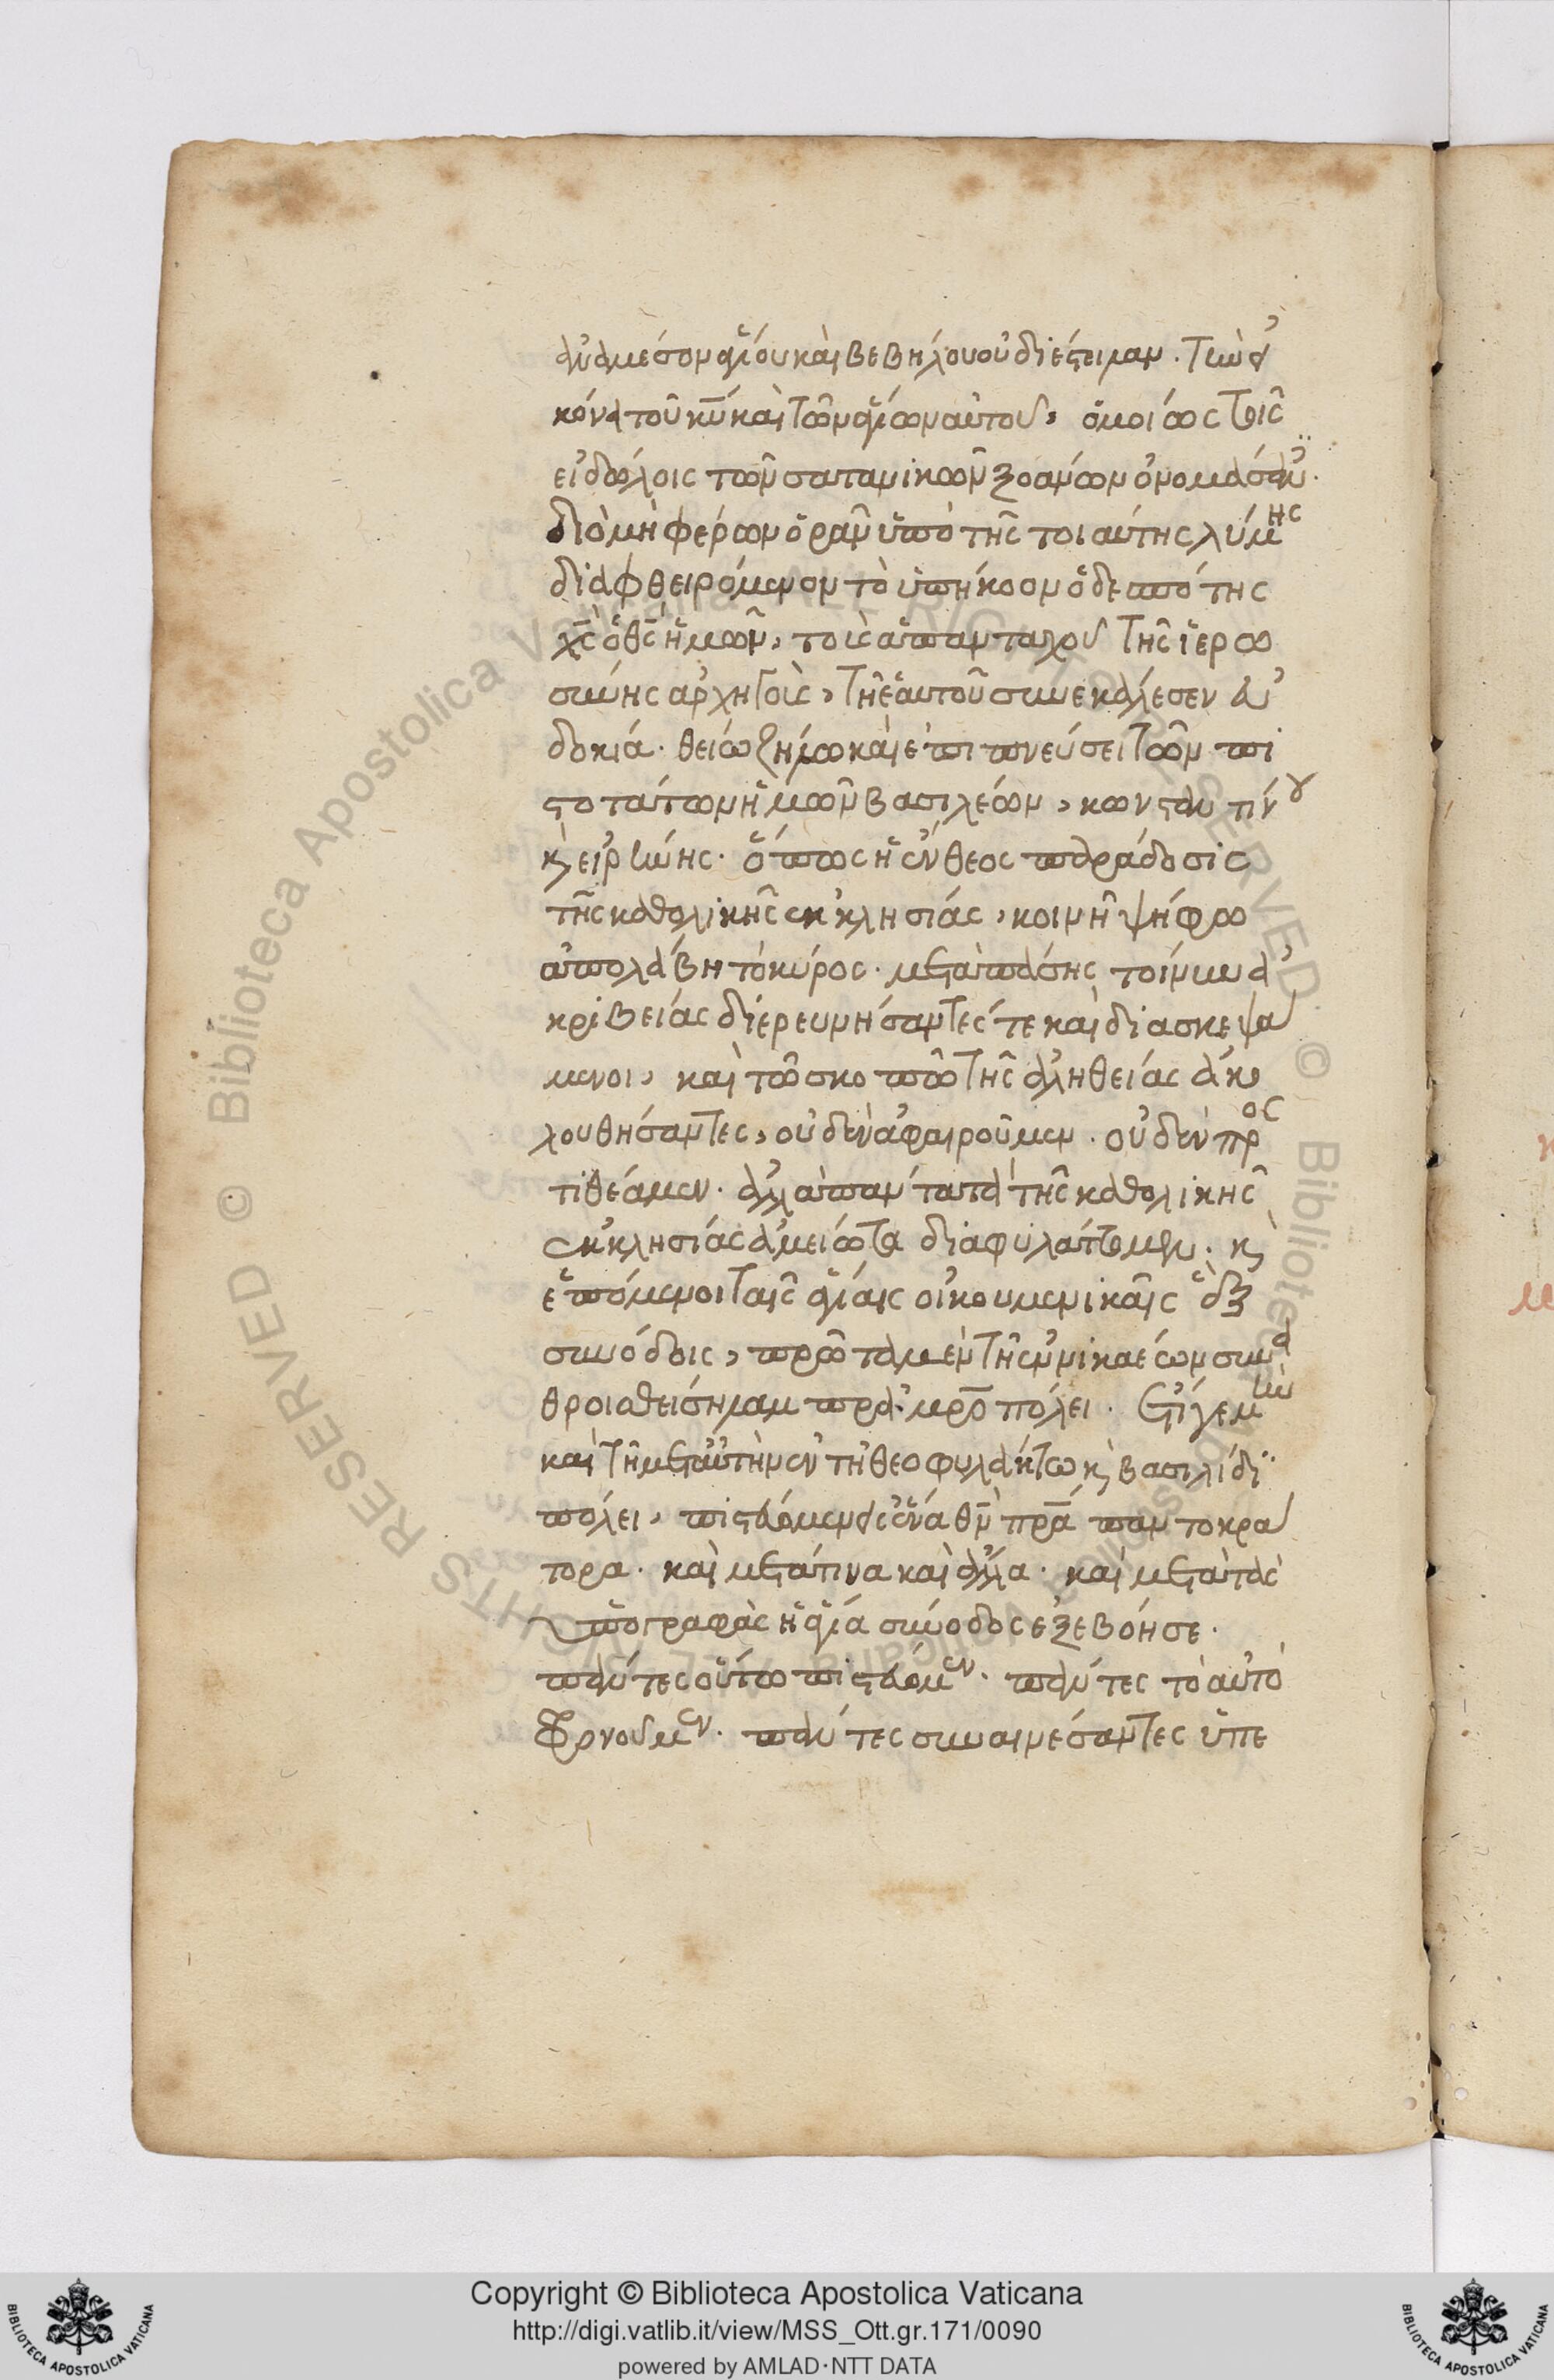 ἀναμέσον ἁγίου καὶ βεβήλου οὐ διέστειλαν. τὴν εἰ
κόνα τοῦ κυ καὶ τῶν ἁγίων αὐτοῦ, ὁμοίως τοῖς
εἰδώλοις τῶν σατανικῶν ξοάνων ὀνομάσαντες.
διὸ μὴ φέρων ὁρᾶν ὑπὸ τῆς τοιαύτης λύμης
διαφθειρόμενον τὸ ὑπήκοον ὁ δεσπότης
χς ὁ θς ἡμῶν, τοὺς ἁπανταχοῦ τῆς ἱερω
σύνης ἀρχηγοὺς, τῇ ἑαυτοῦ συνεκάλεσεν εὐ
δοκία. θείω ζήλω καὶ ἐπιπνεύσει τῶν πι
στοτάτων ἡμῶν βασιλέων, κωνσταντίνου
κ εἰρήνης. ὅπως ἡ ἔνθεος παράδοσις
τῆς καθολικῆς ἐκκλησίας, κοινῇ ψήφω
ἀπολάβη τὸ κύρος. μετὰ πάσης τοίνυν ἀ
κριβείας διερευνήσαντές τε καὶ διασκεψά
μενοι, καὶ τῶ σκοπῶ τῆς ἀληθείας ἀκο
λουθήσαντες, οὐδὲν ἀφαιροῦμεν. οὐδὲν προς
τιθέαμεν. ἀλλὰ πάντα τὰ τῆς καθολικῆς
ἐκκλησίας ἀμείωτα διαφυλάττομεν. κ
ἑπόμενοι ταῖς ἁγίαις οἰκουμενικαῖς ἓξ
συνόδοις, πρῶτα μὲν τῆς ἐν νικαέων συνα
θροισθείση λαμπρᾷ μρο πόλει. ἔτι γε μὴν
καὶ τῇ μετ' αὐτὴν ἐν τῇ θεοφυλάκτω κ βασιλίδι
πόλει, πιστεύομεν εἰς ἕνα θν πρα παντοκρά
τορα. καὶ μετά τινα καὶ ἄλλα. καὶ μετὰ τὰς
ὑπογραφὰς ἡ ἁγία σύνοδος ἐξεβόησε.
πάντες οὕτω πιστεύομεν. πάντες τὸ αὐτὸ
φρονοῦμεν. πάντες συναινέσαντες ὑπε
Copyright © Biblioteca Apostolica Vaticana
http://digi.vatlib.it/view/MSS_Ott.gr.171/0090
powered by AMLAD·NTT DATA